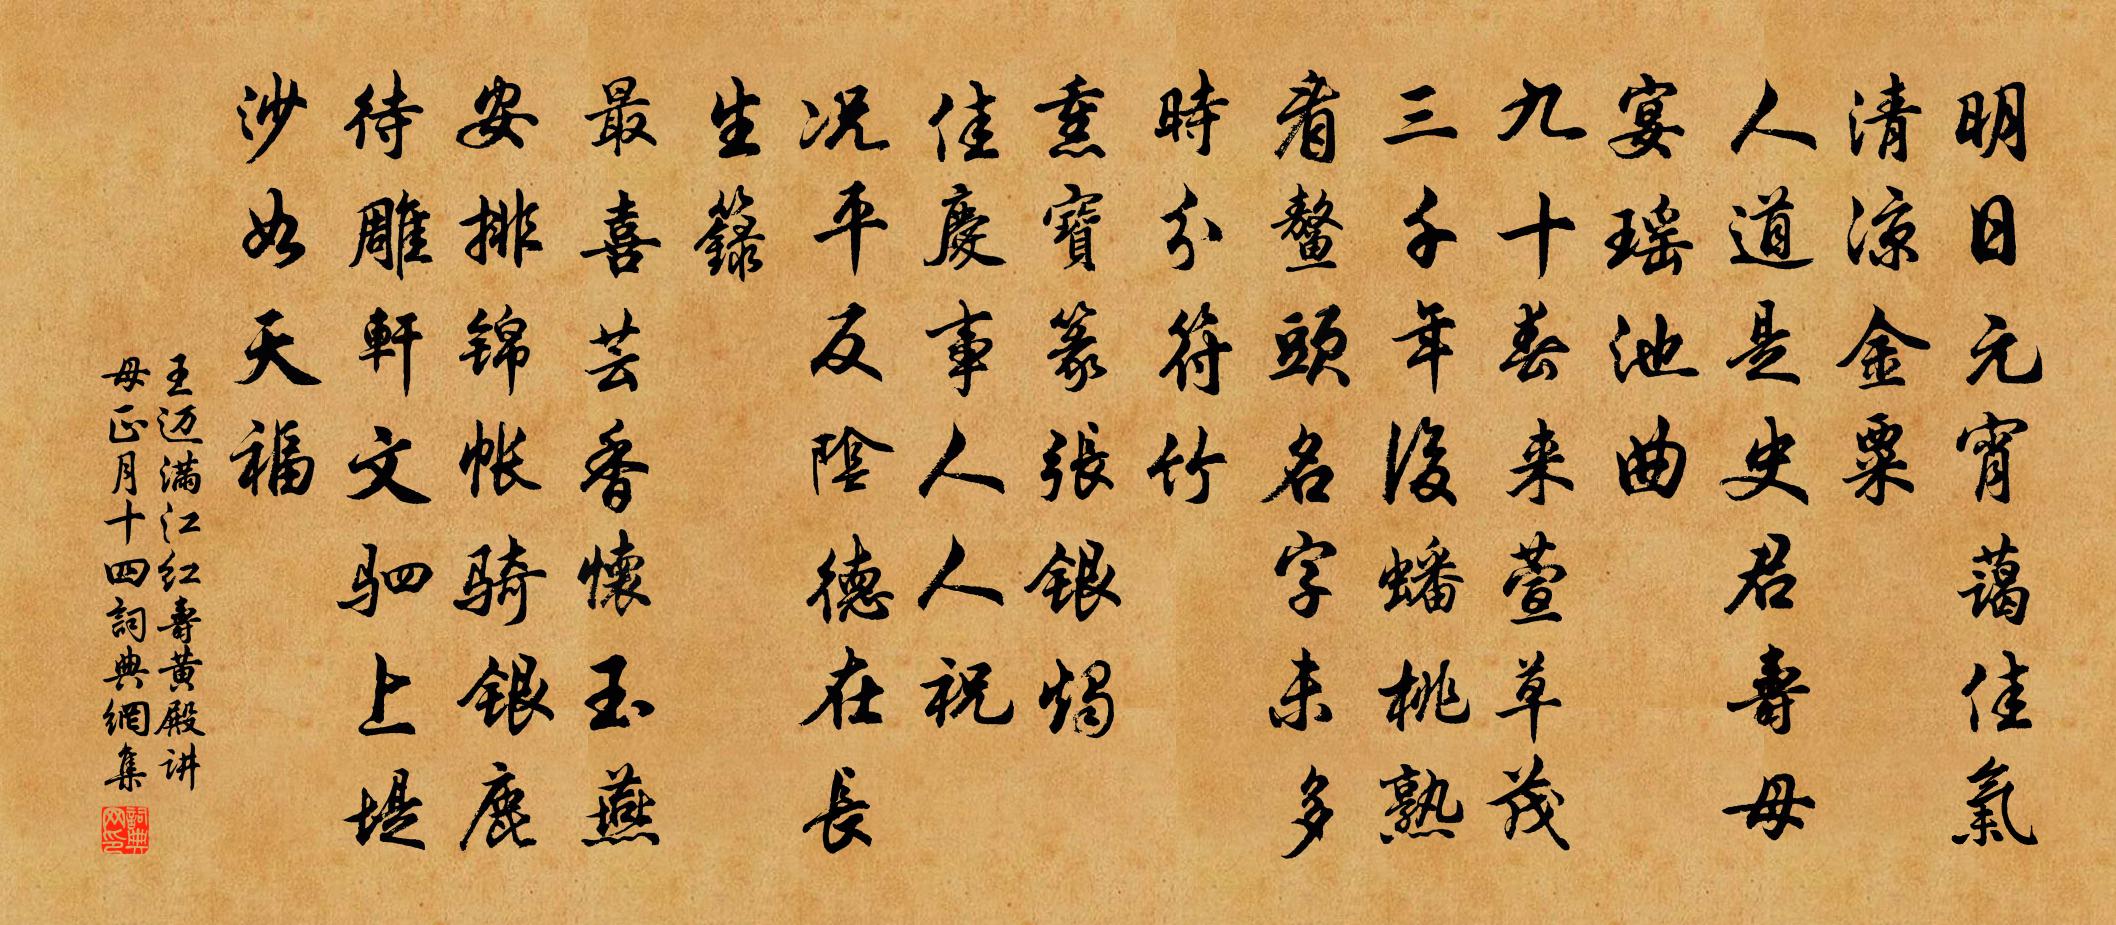 明日元宵藹佳氣
清涼金粟
人道是史君壽母
宴瑶池曲
九十春来萱草茂
三千年後蟠桃熟
看鰲頭名字未多
時分符竹
熏寶篆張銀燭
佳慶事人人祝
况平反陰德在長
生籙
最喜芸香懷玉燕
安排锦帐骑银鹿
待雕軒文驷上堤
沙如天福
王迈满江红壽黄殿讲
母正月十四詞典網集
詞典
网印